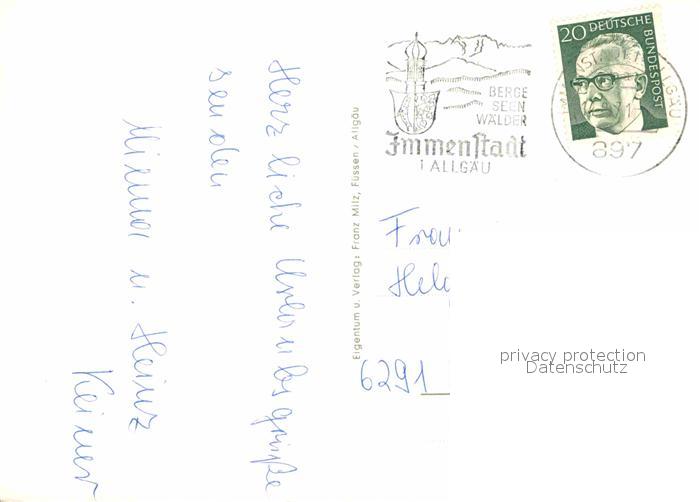 Herzliche Urlaubsgrüße
senden
u. Heinz
Eigentum u. Verlag: Franz Milz, Füssen / Allgäu
BERGE
SEEN
WÄLDER
Immenstadt
i ALLGÄU
20 DEUTSCHE BUNDESPOST
897
Frau
6291
privacy protection
Datenschutz